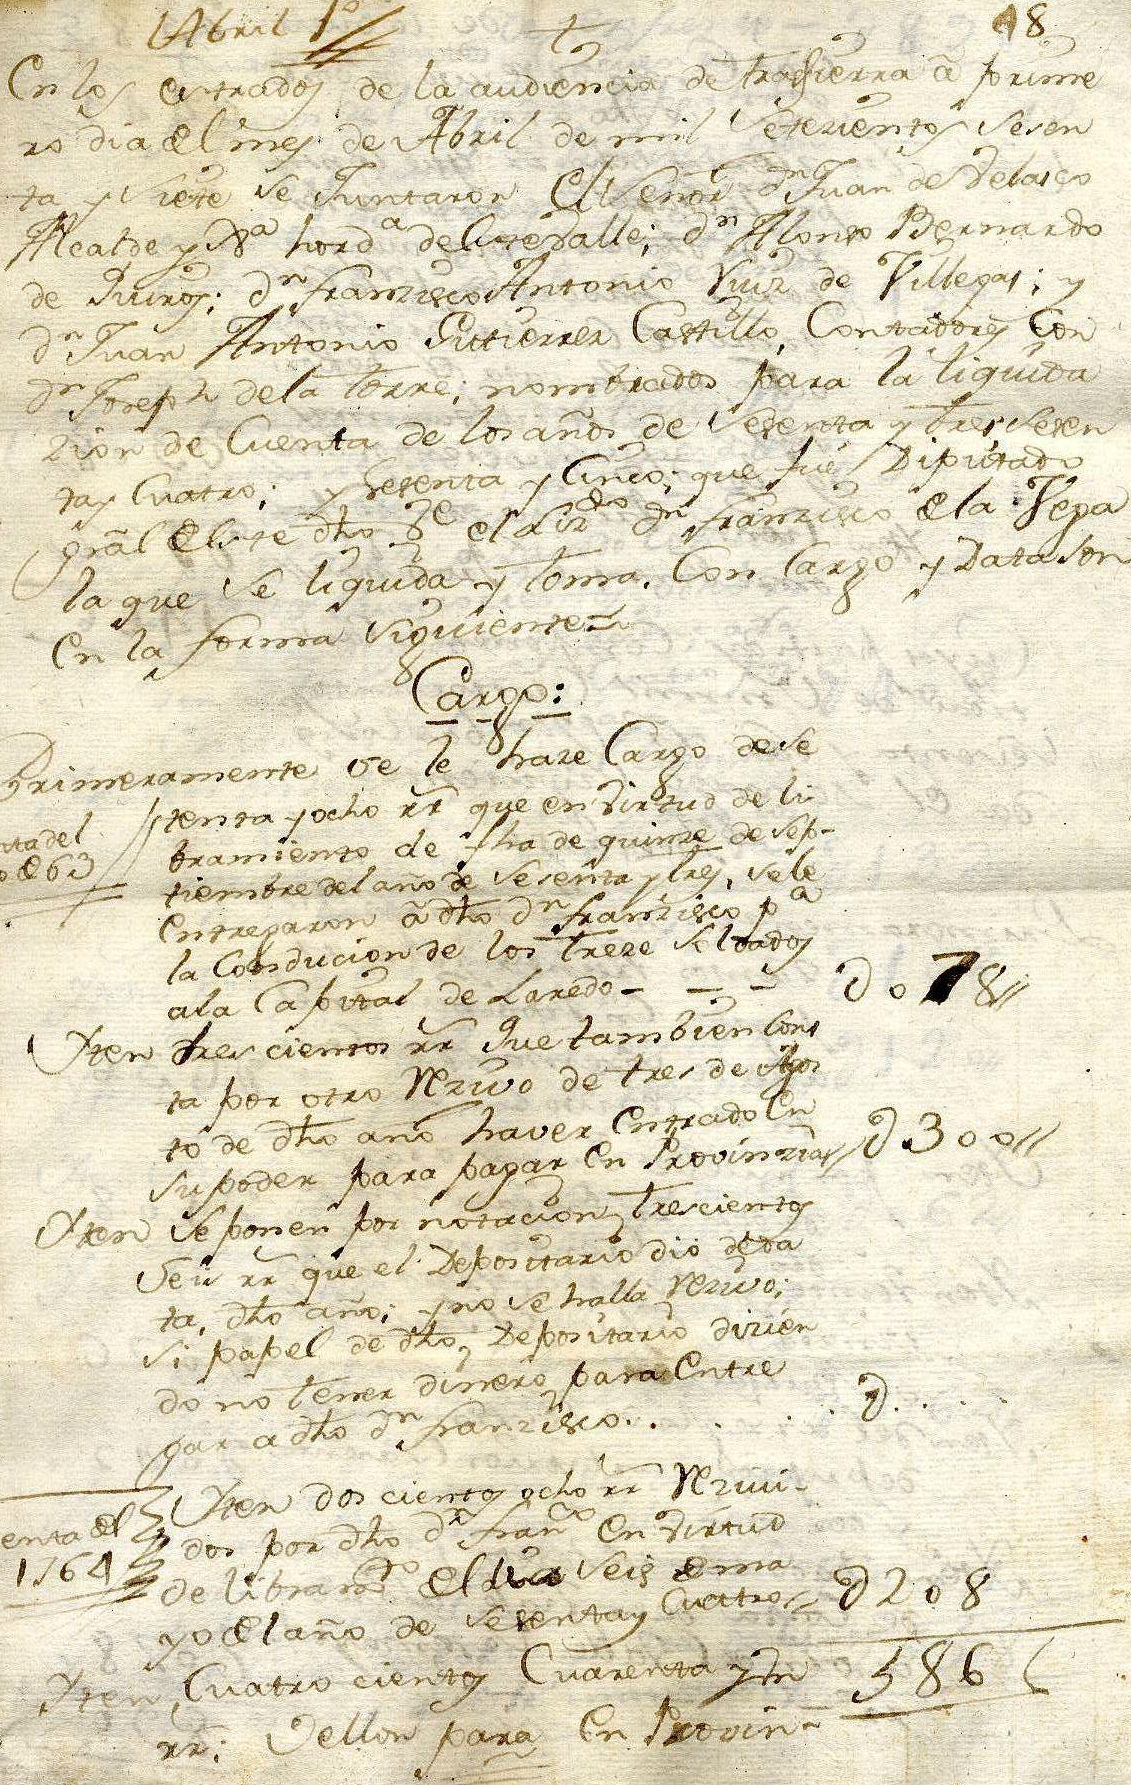 Abril 1º
18
En los estrados de la audiencia de trassierra â prime
ro dia del mes de Abril de mil setezientos sesen
ta y siete se Juntaron El Señor Dn Juan de Velasco
Alcalde y Jª hordª de este valle; dn Alonso Bernardo
de Quiros; dn franzisco Antonio Ruiz de Villegas; y
dn Juan Antonio Gutierrez Castillo, Contadores Con
dn Joseph de la torre; nombrados para la liquida
zion de Cuenta de los años de sesenta y tres, sesen
tay Cuatro; y sesenta y Cinco; que fue Diputado
gral de este dho Ve el Lizdo dn franzisco de la Vega
la que se liquida y toma, Con Cargo y Data son
En la forma siguiente =
Cargo:
Primeramente se le haze Cargo de se
tenta y ocho rr que en virtud de li
bramiento de fha de quinze de sep-
tiembre del año de sesenta y tres, se le
Entregaron â dho dn franzisco pª
la Conducion de los treze soldados
a la Capital de Laredo - - -
D 0 78
nta del
o de 63
Yten trescientos rr que tambien Cons
ta por otro Rzivo de tres de Agos
to de dho año haver Entrado En
su poder para pagar En Provinzia
D 300
Yten se ponen por notacion, trescientos
seis rr que el Depositario dio de da
ta, dho año; y no se halla Rzivo;
si papel de dho Depositario dizien
do no tener dinero para Entre
gar a dho dn franzisco. . . . . D. . . .
enta del
1764
Yten doscientos ocho rr Rzivi-
dos por dho dn Franco En virtud
de libramto del dia seis de ma
yo del año de sesentay Cuatro
D 208
586
Yten, Cuatrocientos Cuarenta y un
rr: Vellon para En Provin-